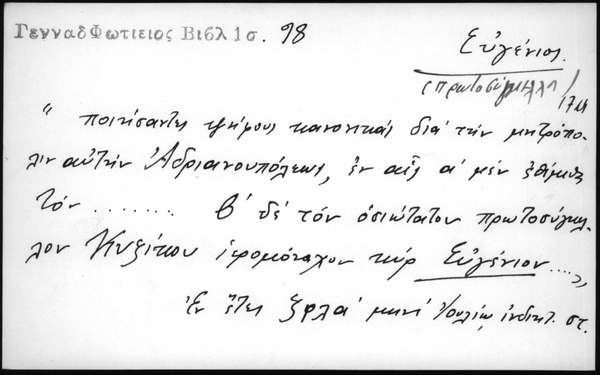 ΓενναδΦωτιειος Βιβλ 1σ. 98
Εὐγένιος.
(πρωτοσύγκελλος)
" ποιήσαντες ψήφους κανονικάς διά τήν μητρόπο-
λιν αὐτήν Ἀδριανουπόλεως, ἐν αἷς α' μέν ἐθήκαμεν
τόν ........ β' δέ τόν ὁσιώτατον πρωτοσύγκελ-
λον Κυζίκου ἱερομόναχον κύρ Εὐγένιον ....."
Ἐν ἔτει ͵ζφλα' μηνί Ἰουλίῳ ἰνδικτ. στ.